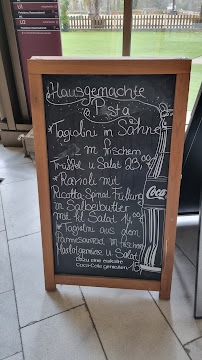 Hausgemachte
Pasta
*Tagiolini in Sahne
m frischem
Trüffel u Salat 23,00
*Ravioli mit
Ricotta-Spinat Füllung
in Salbeibutter
mit kl Salat
*Tagiolini aus dem
Parmesanrad m frischem
u Salat
dazu eine eiskalte
Coca-Cola genießen
Coca-Cola